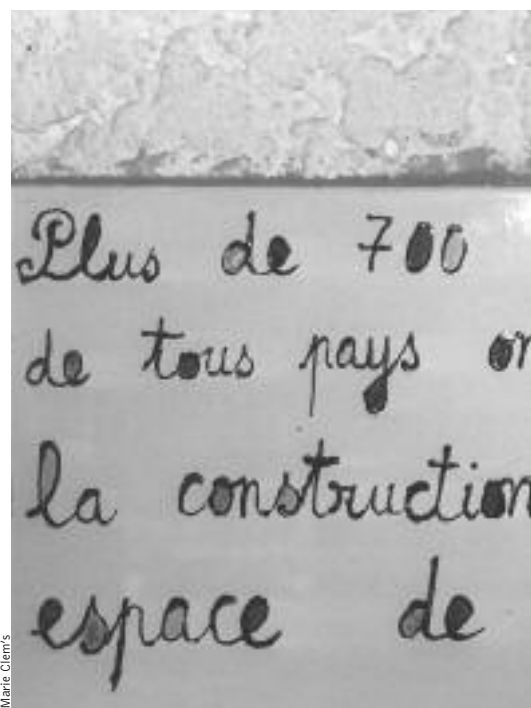 Plus de 700
de tous pays on
la construction
espace de
Marie Clem's